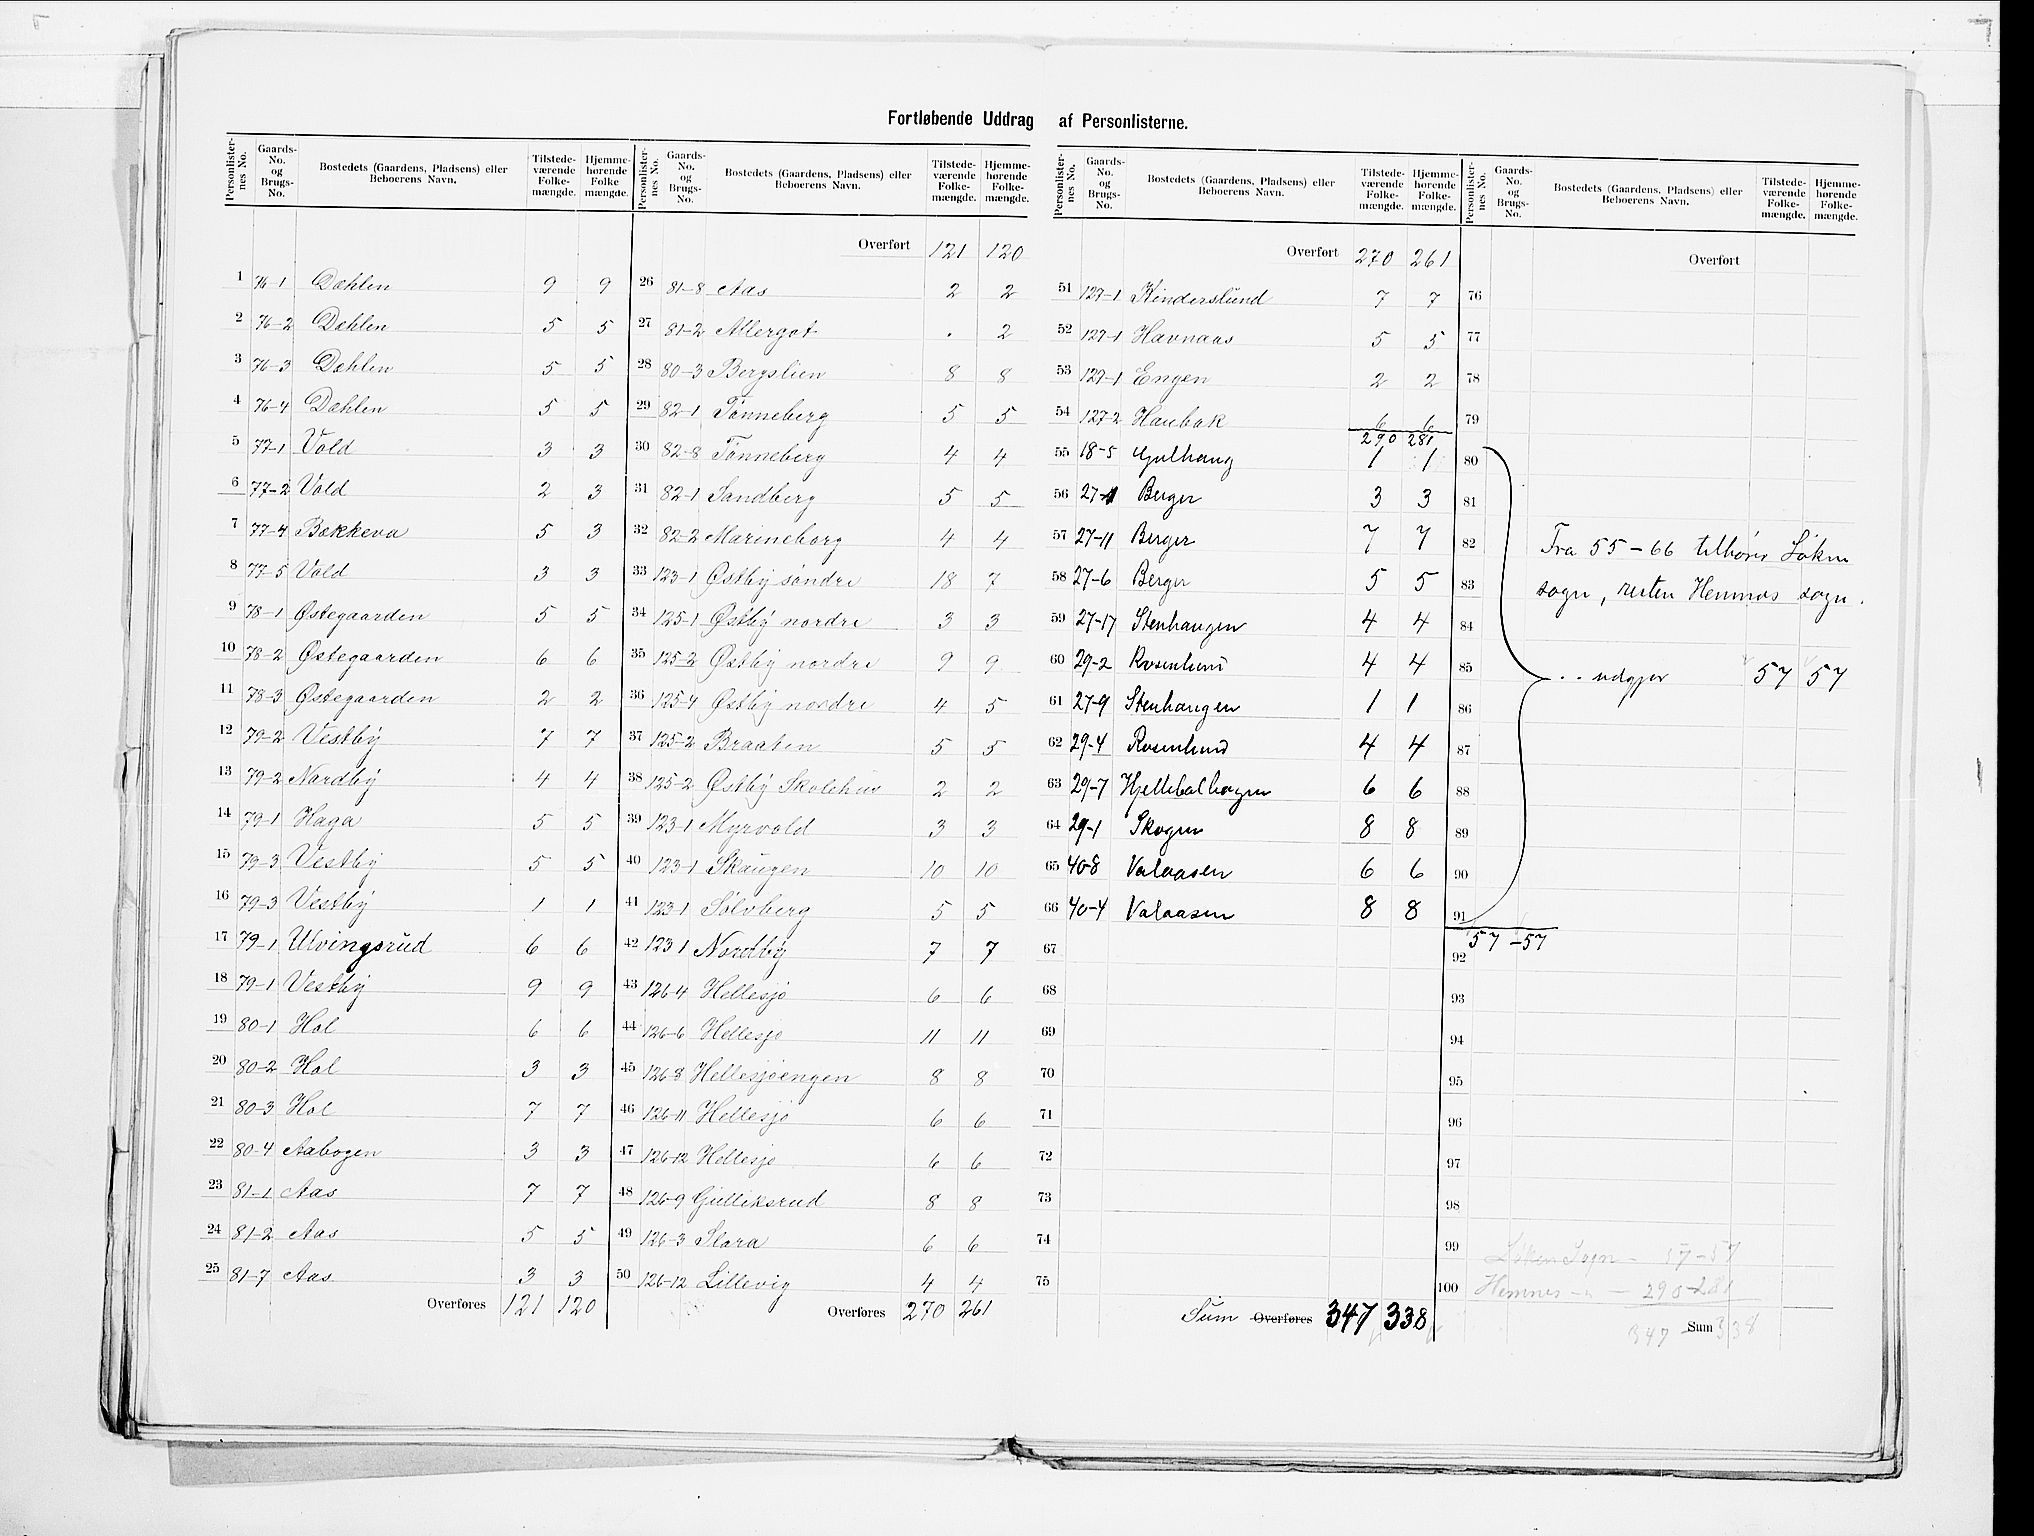 Fortløbende Uddrag af Personlisterne.
Personlister-nes No. | Gaards-No. og Brugs-No. | Bostedets (Gaardens, Pladsens) eller Beboerens Navn. | Tilstede-værende Folke-mængde. | Hjemme-hørende Folke mængde.
1 76-1 Dæhlen 9 9
2 76-2 Dæhlen 5 5
3 76-3 Dæhlen 5 5
4 76-4 Dæhlen 5 5
5 77-1 Vold 3 3
6 77-2 Vold 2 3
7 77-4 Bækkeva 5 3
8 77-5 Vold 3 3
9 78-1 Østegaarden 5 5
10 78-2 Østegaarden 6 6
11 78-3 Østegaarden 2 2
12 79-2 Vestby 7 7
13 79-2 Nordby 4 4
14 79-1 Haga 5 5
15 79-3 Vestby 5 5
16 79-3 Vestby 1 1
17 79-1 Ulvingsrud 6 6
18 79-1 Vestby 9 9
19 80-1 Hol 6 6
20 80-2 Hol 3 3
21 80-3 Hol 7 7
22 80-4 Aabogen 3 3
23 81-1 Aas 7 7
24 81-2 Aas 5 5
25 81-7 Aas 3 3
Overføres 121 120
Personlister-nes No. | Gaards-No. og Brugs-No. | Bostedets (Gaardens, Pladsens) eller Beboerens Navn. | Tilstede-værende Folke-mængde. | Hjemme-hørende Folke-mængde.
Overført 121 120
26 81-8 Aas 2 2
27 81-2 Allergot . 2
28 80-3 Bergslien 8 8
29 82-1 Tønneberg 5 5
30 82-8 Tønneberg 4 4
31 82-1 Sandberg 5 5
32 82-2 Marineborg 4 4
33 123-1 Østby søndre 18 7
34 125-1 Østby nordre 3 3
35 125-2 Østby nordre 9 9
36 125-4 Østby nordre 4 5
37 125-2 Braaten 5 5
38 125-2 Østby Skolehus 2 2
39 123-1 Myrvold 3 3
40 123-1 Skaugen 10 10
41 123-1 Sølvberg 5 5
42 123 1 Nordby 7 7
43 126-4 Hellesjø 6 6
44 126-6 Hellesjø 11 11
45 126-8 Hellesjøengen 8 8
46 126-11 Hellesjø 6 6
47 126-12 Hellesjø 6 6
48 126-9 Gulliksrud 8 8
49 126-3 Slora 6 6
50 126-12 Lillevig 4 4
Overføres 270 261
Personlister-nes No. | Gaards-No. og Brugs-No. | Bostedets (Gaardens, Pladsens) eller Beboerens Navn. | Tilstede-værende Folke-mængde. | Hjemme-hørende Folke-mængde.
Overført 270 261
51 127-1 Kinderslund 7 7
52 127-1 Havnaas 5 5
53 127-1 Engen 2 2
54 127-2 Haubak 6 6
290 281
55 18-5 Gulhaug 1 1
56 27-1 Berger 3 3
57 27-11 Berger 7 7
58 27-6 Berger 5 5
59 27-17 Stenhaugen 4 4
60 29-2 Rosenlund 4 4
61 27-9 Stenhaugen 1 1
62 29-4 Rosenlund 4 4
63 29-7 Hjellebølhagen 6 6
64 29-1 Skogen 8 8
65 40-8 Valaasen 6 6
66 40-4 Valaasen 8 8
67
68
69
70
71
72
73
74
75
Sum Overføres 347 338
Personlister-nes No. | Gaards-No. og Brugs-No. | Bostedets (Gaardens, Pladsens) eller Beboerens Navn. | Tilstede-værende Folke-mængde. | Hjemme-hørende Folke-mængde.
Overført
76
77
78
79
80
81
82 Fra 55-66 tilhører Løken
83 sogn, resten Hemnes sogn.
84
85 .. udgjør 57 57
86
87
88
89
90
91
57-57
92
93
94
95
96
97
98
99 Løken Sogn - 57-57
100 Hemnes - " - 290-281
347 - Sum 338